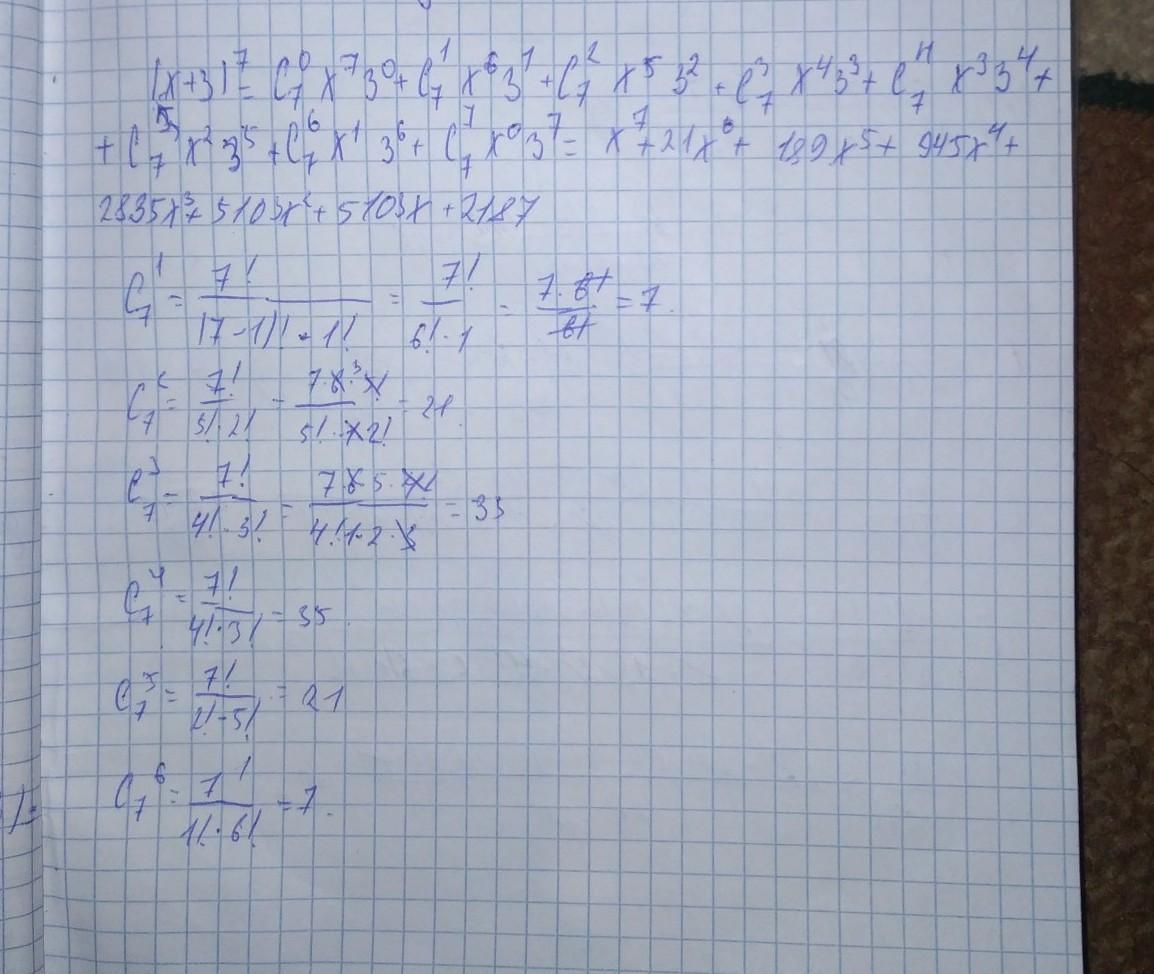 (x+3)⁷ = C₇⁰ x⁷3⁰ + C₇¹ x⁶3¹ + C₇² x⁵3² + C₇³ x⁴3³ + C₇⁴ x³3⁴ +
+ C₇⁵ x²3⁵ + C₇⁶ x¹3⁶ + C₇⁷ x⁰3⁷ = x⁷ + 21x⁶ + 189x⁵ + 945x⁴ +
2835x³ + 5103x² + 5103x + 2187
C₇¹ = 7! / (7-1)! · 1! = 7! / 6! · 1 = 7 · 6! / 6! = 7.
C₇² = 7! / 5! · 2! = 7 · 6 ³ · 5! / 5! · 1 · 2! = 21
C₇³ = 7! / 4! · 3! = 7 · 6 · 5 · 4! / 4! 1 · 2 · 3 = 35
C₇⁴ = 7! / 4! · 3! = 35.
C₇⁵ = 7! / 2! · 5! = 21
C₇⁶ = 7! / 1! · 6! = 7.